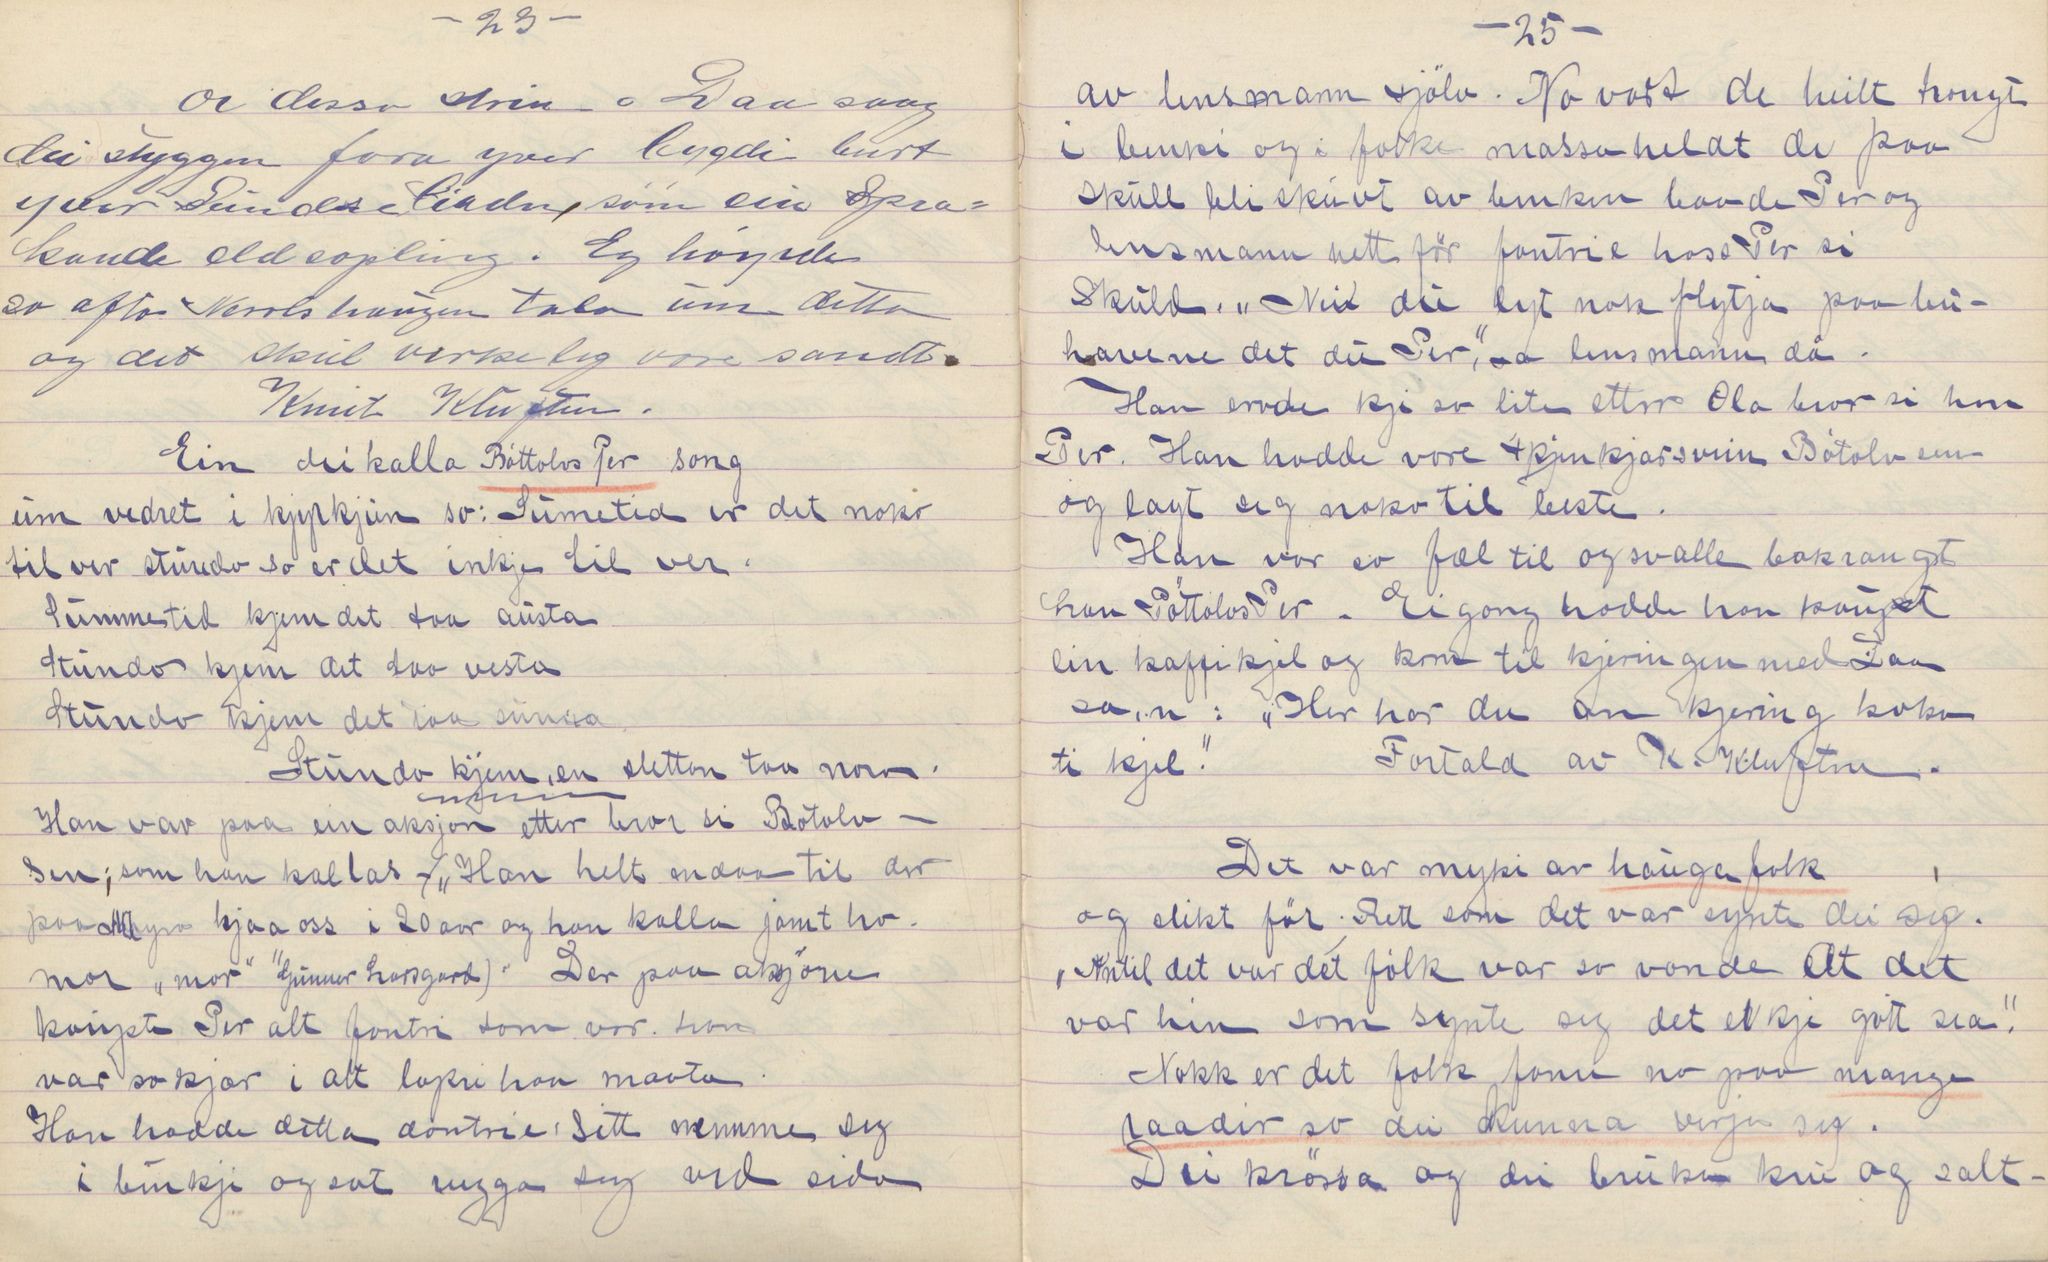 - 23 -
or desso strin o Daa saag
dei skyggen fara yver bygdi burt
yver Sundre Lindn, som ein spra=
kande eldsopling. Eg høyrde
so afto Nerolshaugen tala um detta
og det skul verkeleg vore sandt.
Knut Kluften.
Ein dei kalla Bóttolvs Per song
um vedret i kjyrkjun so: Sumetid er det noko
til ver stundo so er det inkje til ver.
Summetid kjem det taa austa
Stundo kjem det taa vesta
Stundo kjem det taa sunna
Stundo kjem, en sletton taa nora.
Han var paa ein aksjon etter bror si Bótolv -
sen; som han kallas - („Han helt endaa til der
paa Myro hjaa oss i 20 aar og han kalla jamt ho.
mor „mor" Gunner Larsgard)." Der paa aksjóne
kaupte Per alt fantri som var. han
var so kjær i alt lopri han maata.
Han hadde ditta dontrie sitt nemme seg
i binkji og sat rugga seg ved sida
- 25 -
av lensmann sjölv. No vart de heilt trongt
i benki og i folke massa heldt de paa
skull bli skuvt av benken baade Per og
lensmann nett för fantrie hass Per si
Skuld. „Nei du lyt nok flytja paa bu-
havene det du Per," sa lensmann då.
Han ervde kji so lite ettr Ola bror si han
Per. Han hadde vore skjenkjarsvein Bótolv sen
og lagt seg noko til beste.
Han var so fæl til og svalle bakrangst
han Póttolvs Per. Ei gong hadde han kaupt
ein kaffikjel og kom til kjeringen med Daa
sa, n: „Her har du an kjering koka
ti kjel." Fortald av K. Kluften.
Det var mykji av haugafolk
og slikt för. Rett som det var synte dei seg.
„Antil det var det folk var so vonde elt det
var hin som synte seg det e kje gott sea".
Nokk er det folk fann no paa mange
raadir so dei kunna verja seg.
Dei krossa og dei bruka kru og salt-